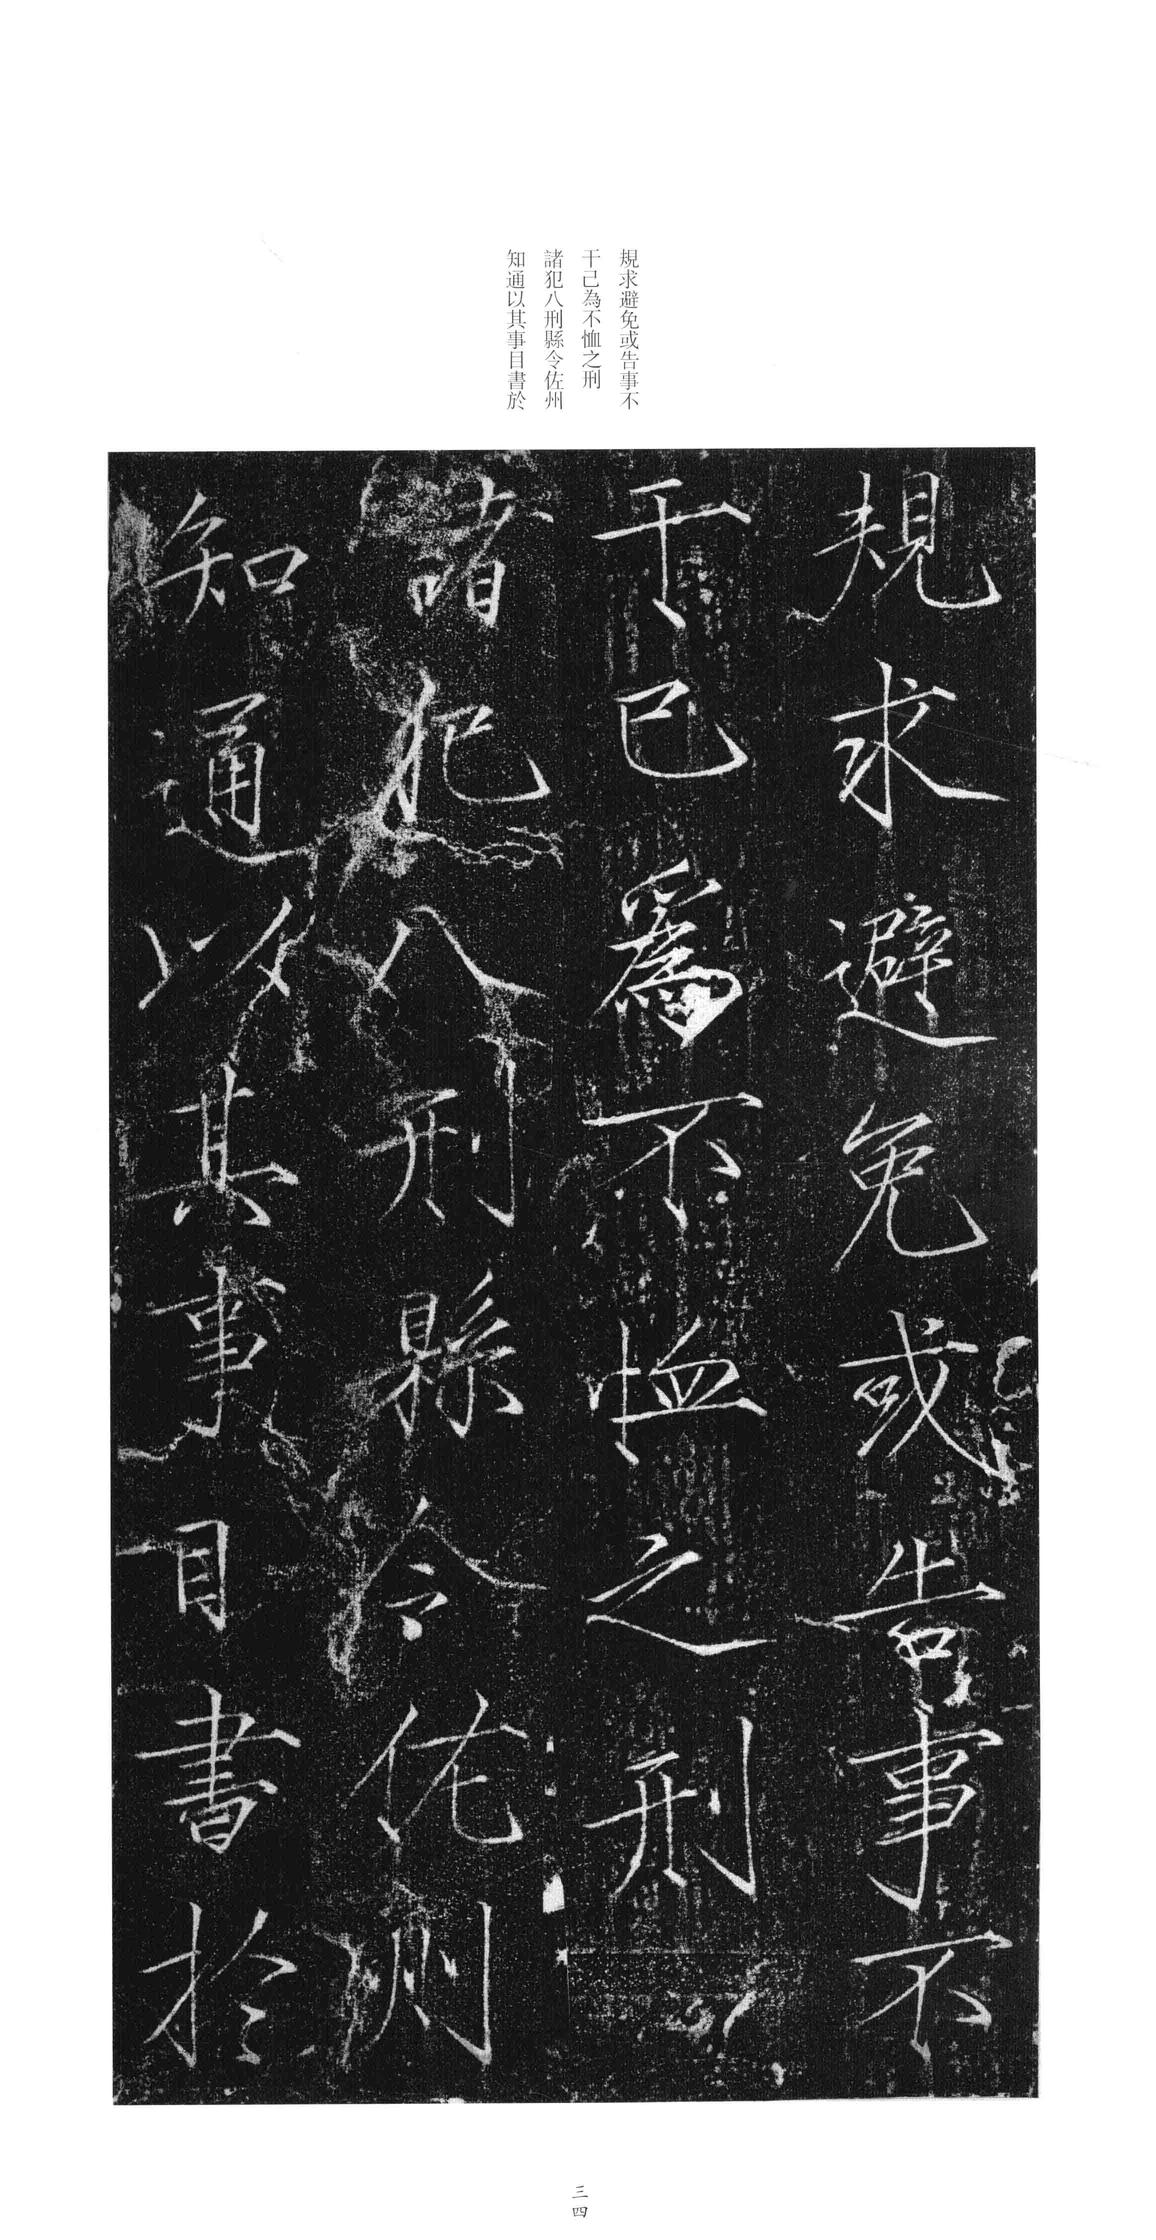 規求避免或告事不
干己為不恤之刑
諸犯八刑縣令佐州
知通以其事目書於
規求避免或告事不
干己爲不恤之刑
諸犯八刑縣令佐州
知通以其事目書於
三四